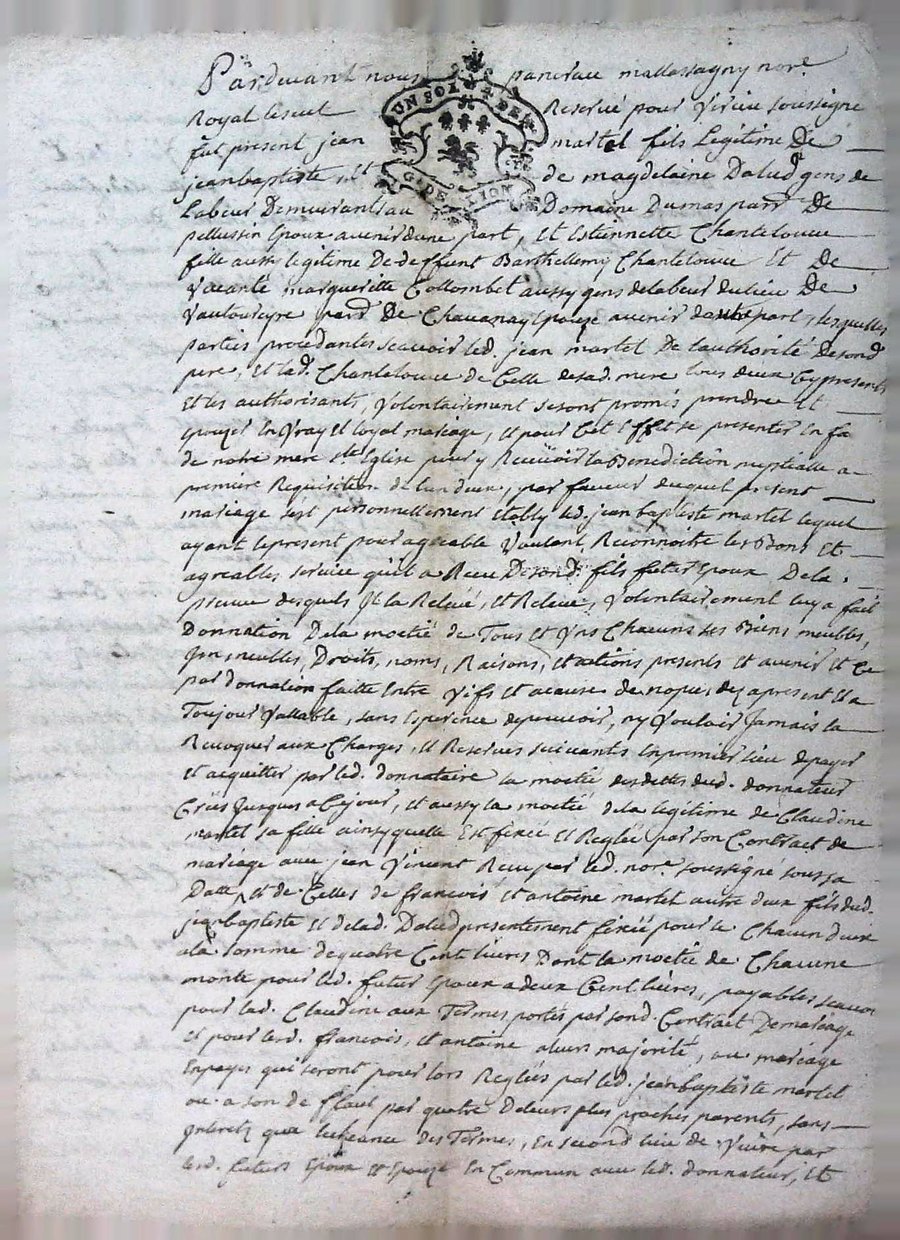 Pardevant nous pancrace mallassagny nore.
UN SOL 4 DEN.
G. DE LYON
Royal Receut Reservé pour Virieu soussigné
fut present jean martel fils Legitime De
jean baptiste, et de magdelaine Dalud gens de
Labeur Demeurants au Domaine Dumas parr. De
pellussin Epoux avenir d'une part, Et Estiennette Chantelouve
fille aussi legitime De deffunt Barthellemy Chantelouve Et De
Vivante marguerite Collombet aussy gens de labeur du lieu De
Vautoureyre parr. De Chavanay Epouze avenir dautre part, lesquelles
parties procedantes scavoir led. jean martel De lauthorité De sond.
pere, Et lad. Chantelouve de Celle de sad. mere tous deux Cy presents
Et les authorisants, Volontairement se sont promis prendre Et
Epouzer En Vray Et loyal mariage, Et pour Cet Effet se presenter En fa
de notre mere ste. Eglise pour y Recevoir la Benediction nuptialle a
premiere Requisition de lun deux, par faveur duquel present
mariage sest personnellement Etably led. jean baptiste martel lequel
ayant le present pour agreable Voulant Reconnoitre les Bons Et
agreables service quil a Receu De sond. fils futur Epoux De la
preuve desquels Il la Relevé, Et Releve, Volontairement luy a fait
Donnation De la moetié de Tous Et Uns Chacuns ses Biens meubles,
Immeubles, Droits, noms, Raisons, Et actions presents Et avenir Et Ce
par donnation faitte Entre Vifs Et a cause de nopce, des a present Et a
Toujour Vallable, sans Esperence de pouvoir, ny Vouloir Jamais la
Revoquer aux Charges, Et Reserves suivantes En premier lieu de payer
Et acquitter par led. donnataire la moetié des dettes dud. donnateur
Crées Jusques a Ce jour, Et aussy la moetié de la legitime de Claudine
martel sa fille ainsy quelle Est fixée Et Reglée par son Contract de
mariage avec jean Vincent Receu par led. nore. soussigné sous sa
Datte, Et de Celles de francois Et antoine martel autre deux fils dud.
jean baptiste Et de lad. Dalud presentement fixée pour le Chacun deux
a la somme de quatre Cent livres Dont la moetié de Chacune
monte pour led. futur Epoux a deux Cent livres, payables scavoir
pour lad. Claudine aux Termes portés par sond. Contract De mariage
Et pour lesd. francois, Et antoine a leurs majorité, ou mariage
En payes qui seront pour lors Reglées par led. jean baptiste martel
ou a son deffaut par quatre De leurs plus proches parents, sans
Interets qua lecheance des Termes, En second lieu de Vivre par
lesd. futurs Epoux Et Epouze En Commun avec led. donnateur, Et